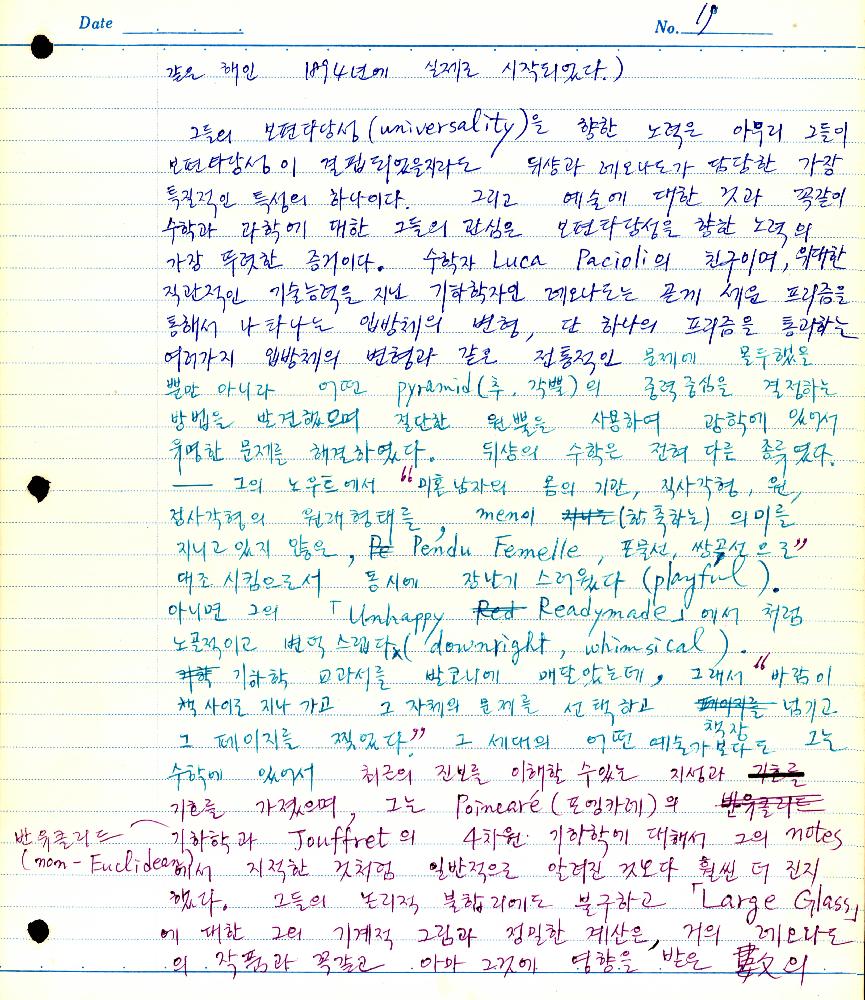 Date
No. 19
같은 해인 1894년에 실제로 시작되었다.)
그들의 보편타당성(universality)을 향한 노력은 아무리 그들이
보편타당성이 결핍되었을지라도 뒤샹과 레오나도가 담당한 가장
특질적인 특성의 하나이다. 그리고 예술에 대한 것과 꼭같이
수학과 과학에 대한 그들의 관심은 보편타당성을 향한 노력의
가장 뚜렷한 증거이다. 수학자 Luca Pacioli의 친구이며, 위대한
직관적인 기술능력을 지닌 기하학자인 레오나도는 곧게 세운 프리즘을
통해서 나타나는 입방체의 변형, 단 하나의 프리즘을 통과하는
여러가지 입방체의 변형과 같은 전통적인 문제에 몰두했을
뿐만 아니라 어떤 pyramid(추, 각뿔)의 중력중심을 결정하는
방법을 발견했으며 절단한 원뿔을 사용하여 광학에 있어서
유명한 문제를 해결하였다. 뒤샹의 수학은 전혀 다른 종류였다.
—— 그의 노우트에서 "미혼남자의 몸의 기관, 직사각형, 원,
정사각형의 원래형태를, men이 (함축하는) 의미를
지니고 있지 않은, Pendu Femelle, 포물선, 쌍곡선으로"
대조시킴으로서 동시에 장난기 스러웠다 (playful).
아니면 그의 「Unhappy Readymade」에서 처럼
노골적이고 변덕스럽다(downright, whimsical).
기하학 교과서를 발코니에 매달았는데, 그래서 "바람이
책사이로 지나가고 그 자체의 문제를 선택하고 책장 넘기고
그 페이지를 찢었다." 그 세대의 어떤 예술가보다도 그는
수학에 있어서 최근의 진보를 이해할 수있는 지성과
기호를 가졌으며, 그는 Poincaré(포잉카레)의
반유클리드 (non-Euclidean)
기하학과 Jouffret의 4차원 기하학에 대해서 그의 notes
에서 지적한 것처럼 일반적으로 알려진 것보다 훨씬 더 진지
했다. 그들의 논리적 불합리에도 불구하고 「Large Glass」
에 대한 그의 기계적 그림과 정밀한 계산은, 거의 레오나도
의 작품과 꼭같고 아마 그것에 영향을 받은 數文의